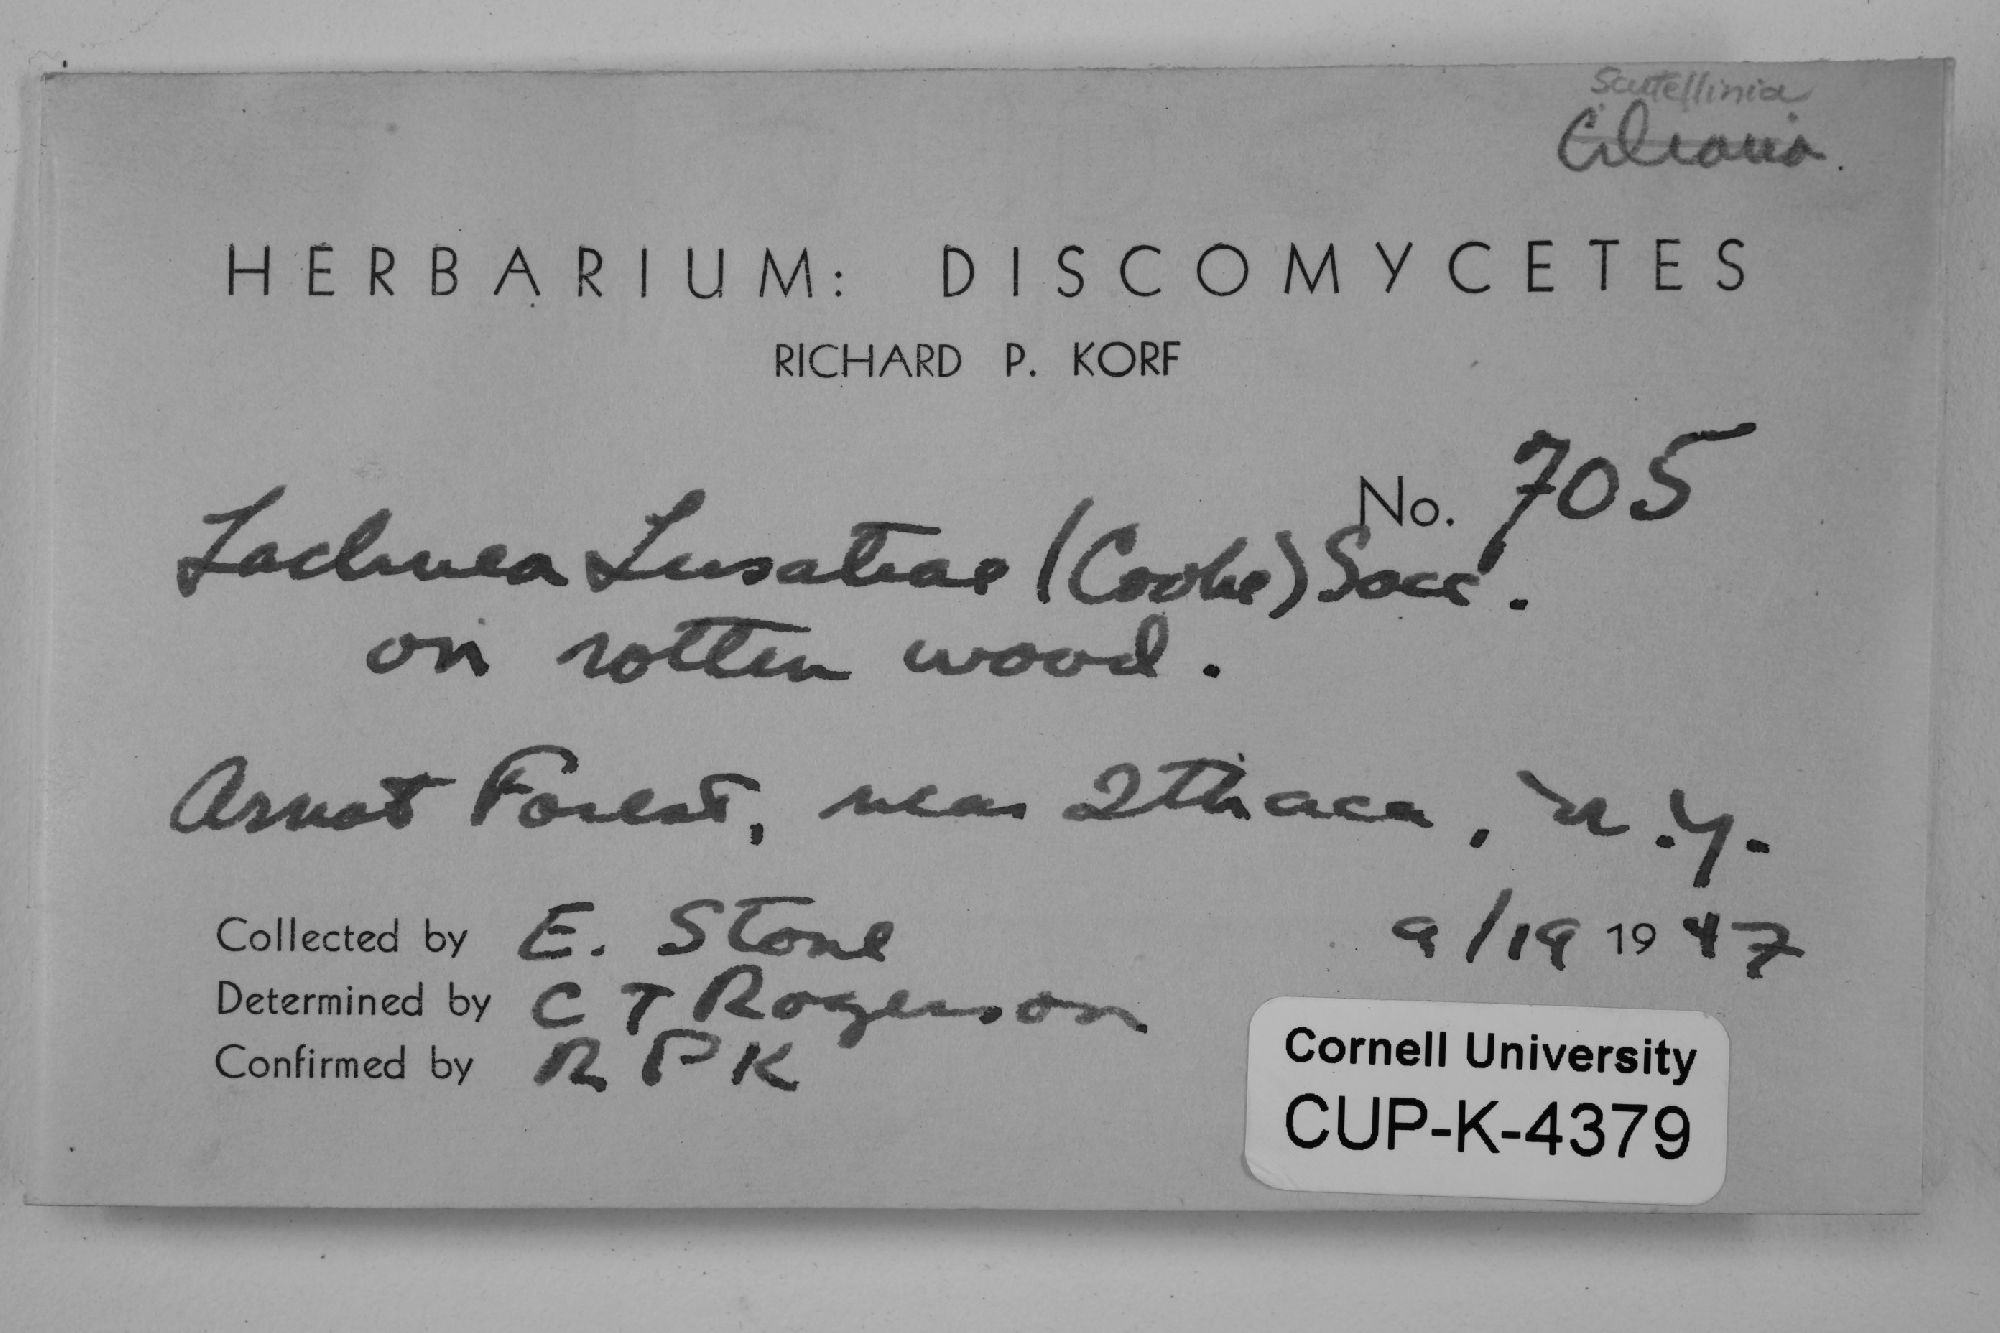 Scutellinia
Ciliaria.
HERBARIUM: DISCOMYCETES
RICHARD P. KORF
No. 705
Lachnea Lusatiae (Cooke) Sacc.
on rotten wood.
Arnot Forest, near Ithaca, N.Y.
Collected by E. Stone 9/19 1947
Determined by C T Rogerson
Confirmed by R P K
Cornell University
CUP-K-4379